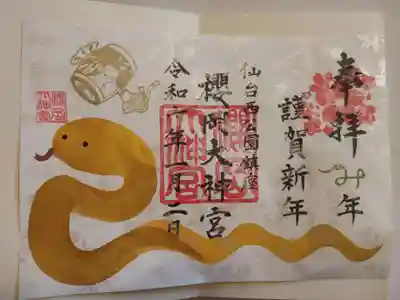 奉拝
み年
謹賀新年
仙台西公園鎮座
櫻岡大神宮
令和七年一月二日